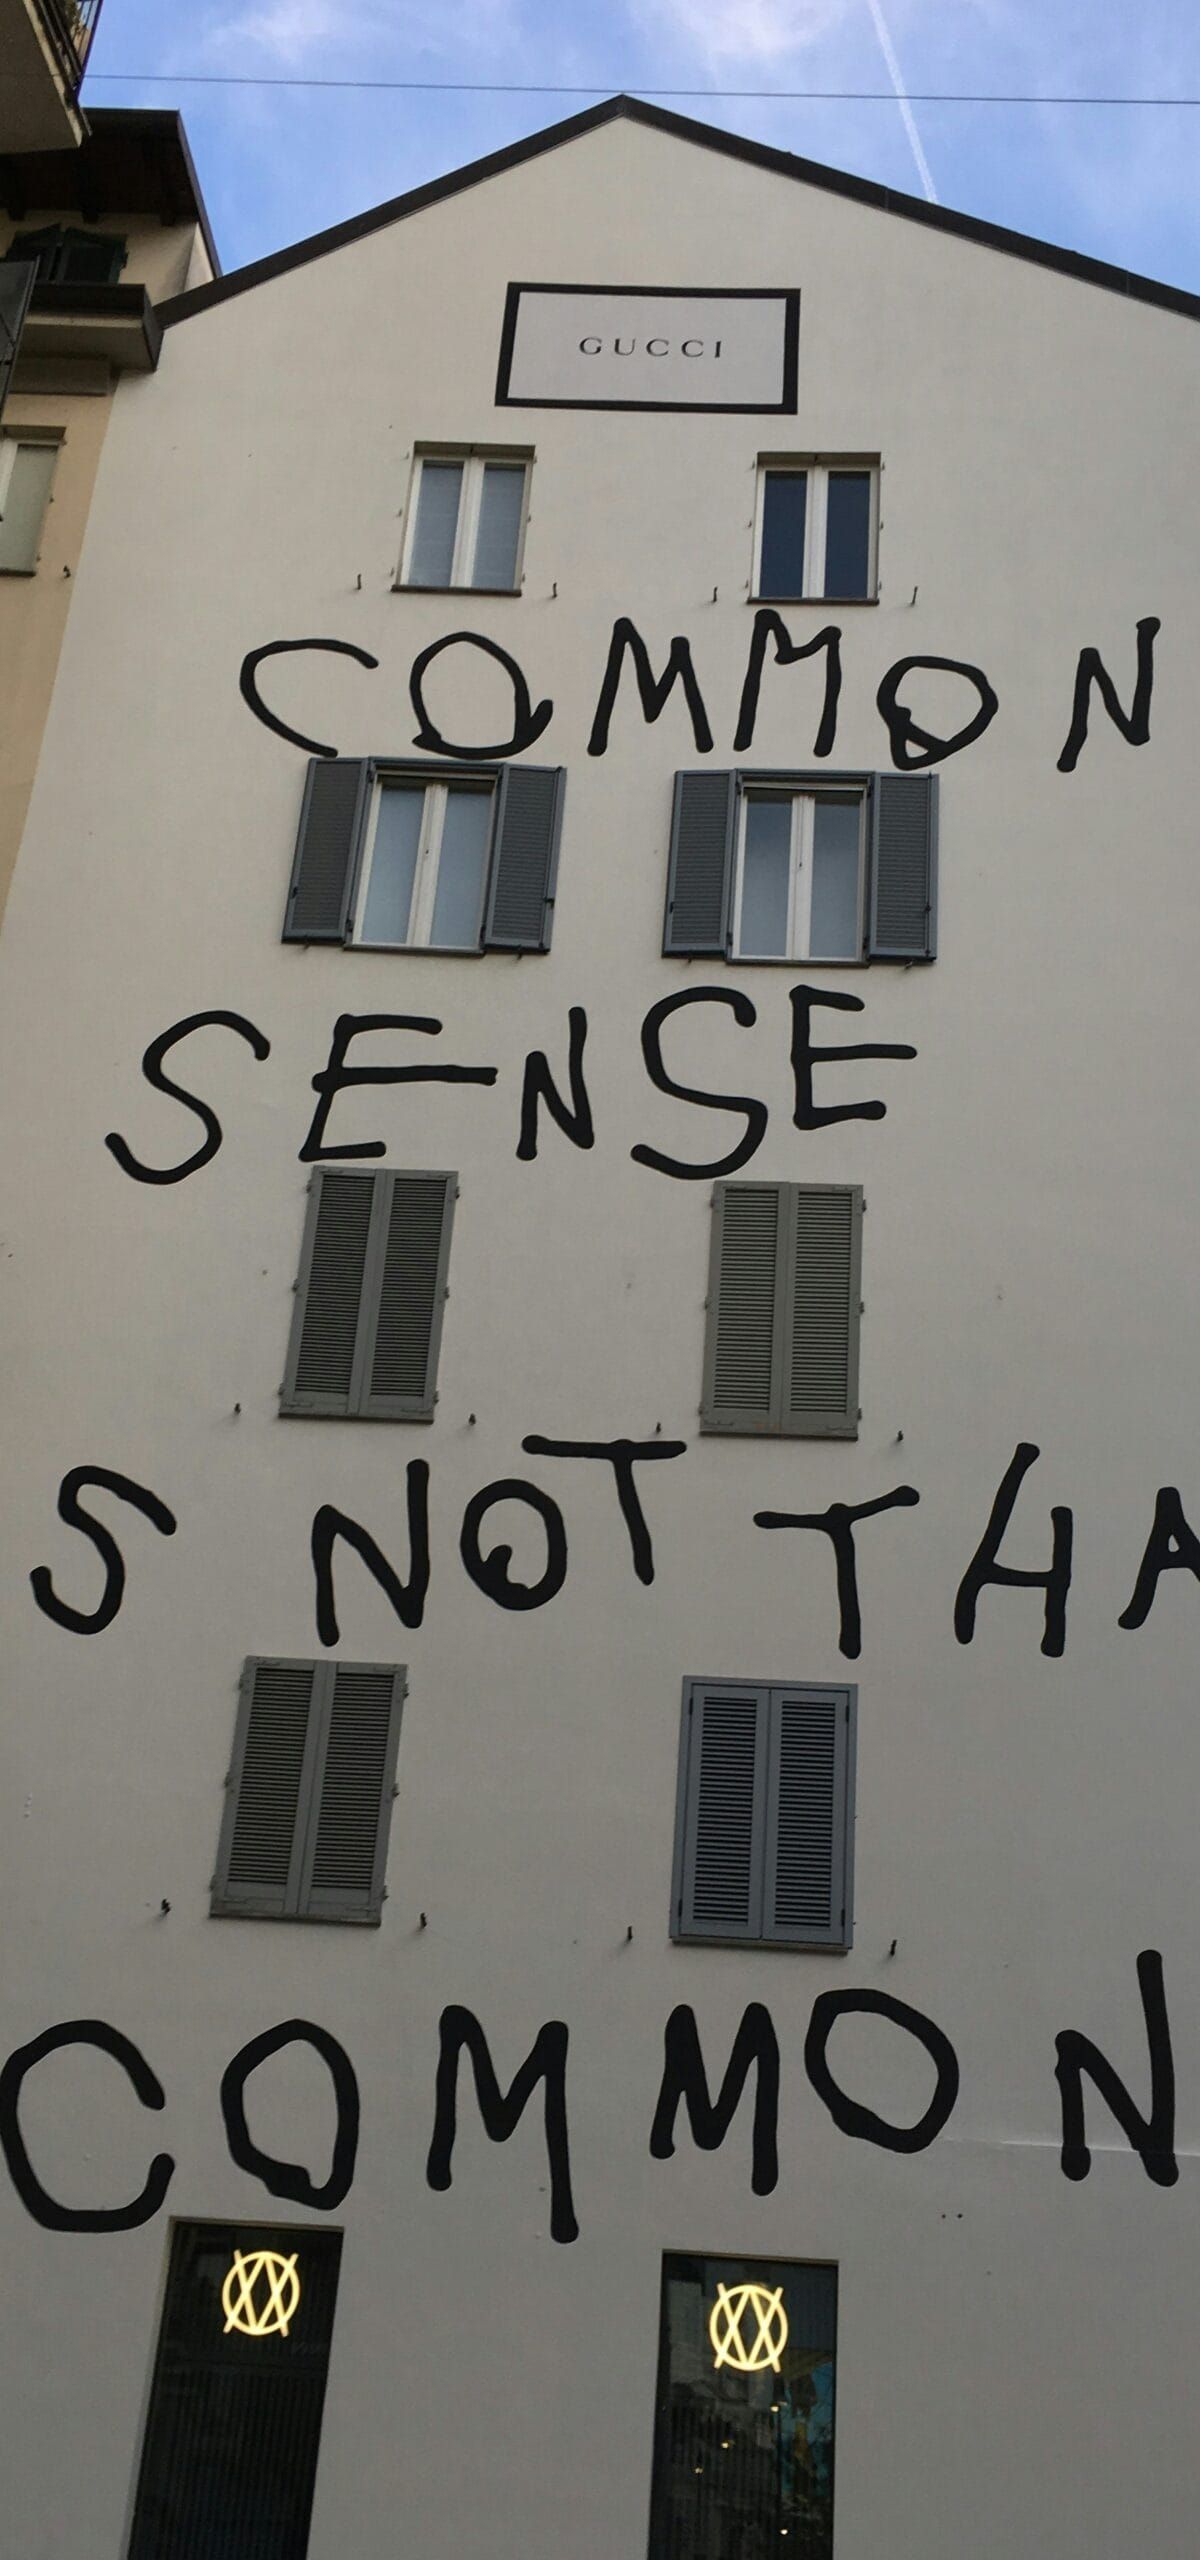 GUCCI
COMMON
SENSE
S NOT THA
COMMON